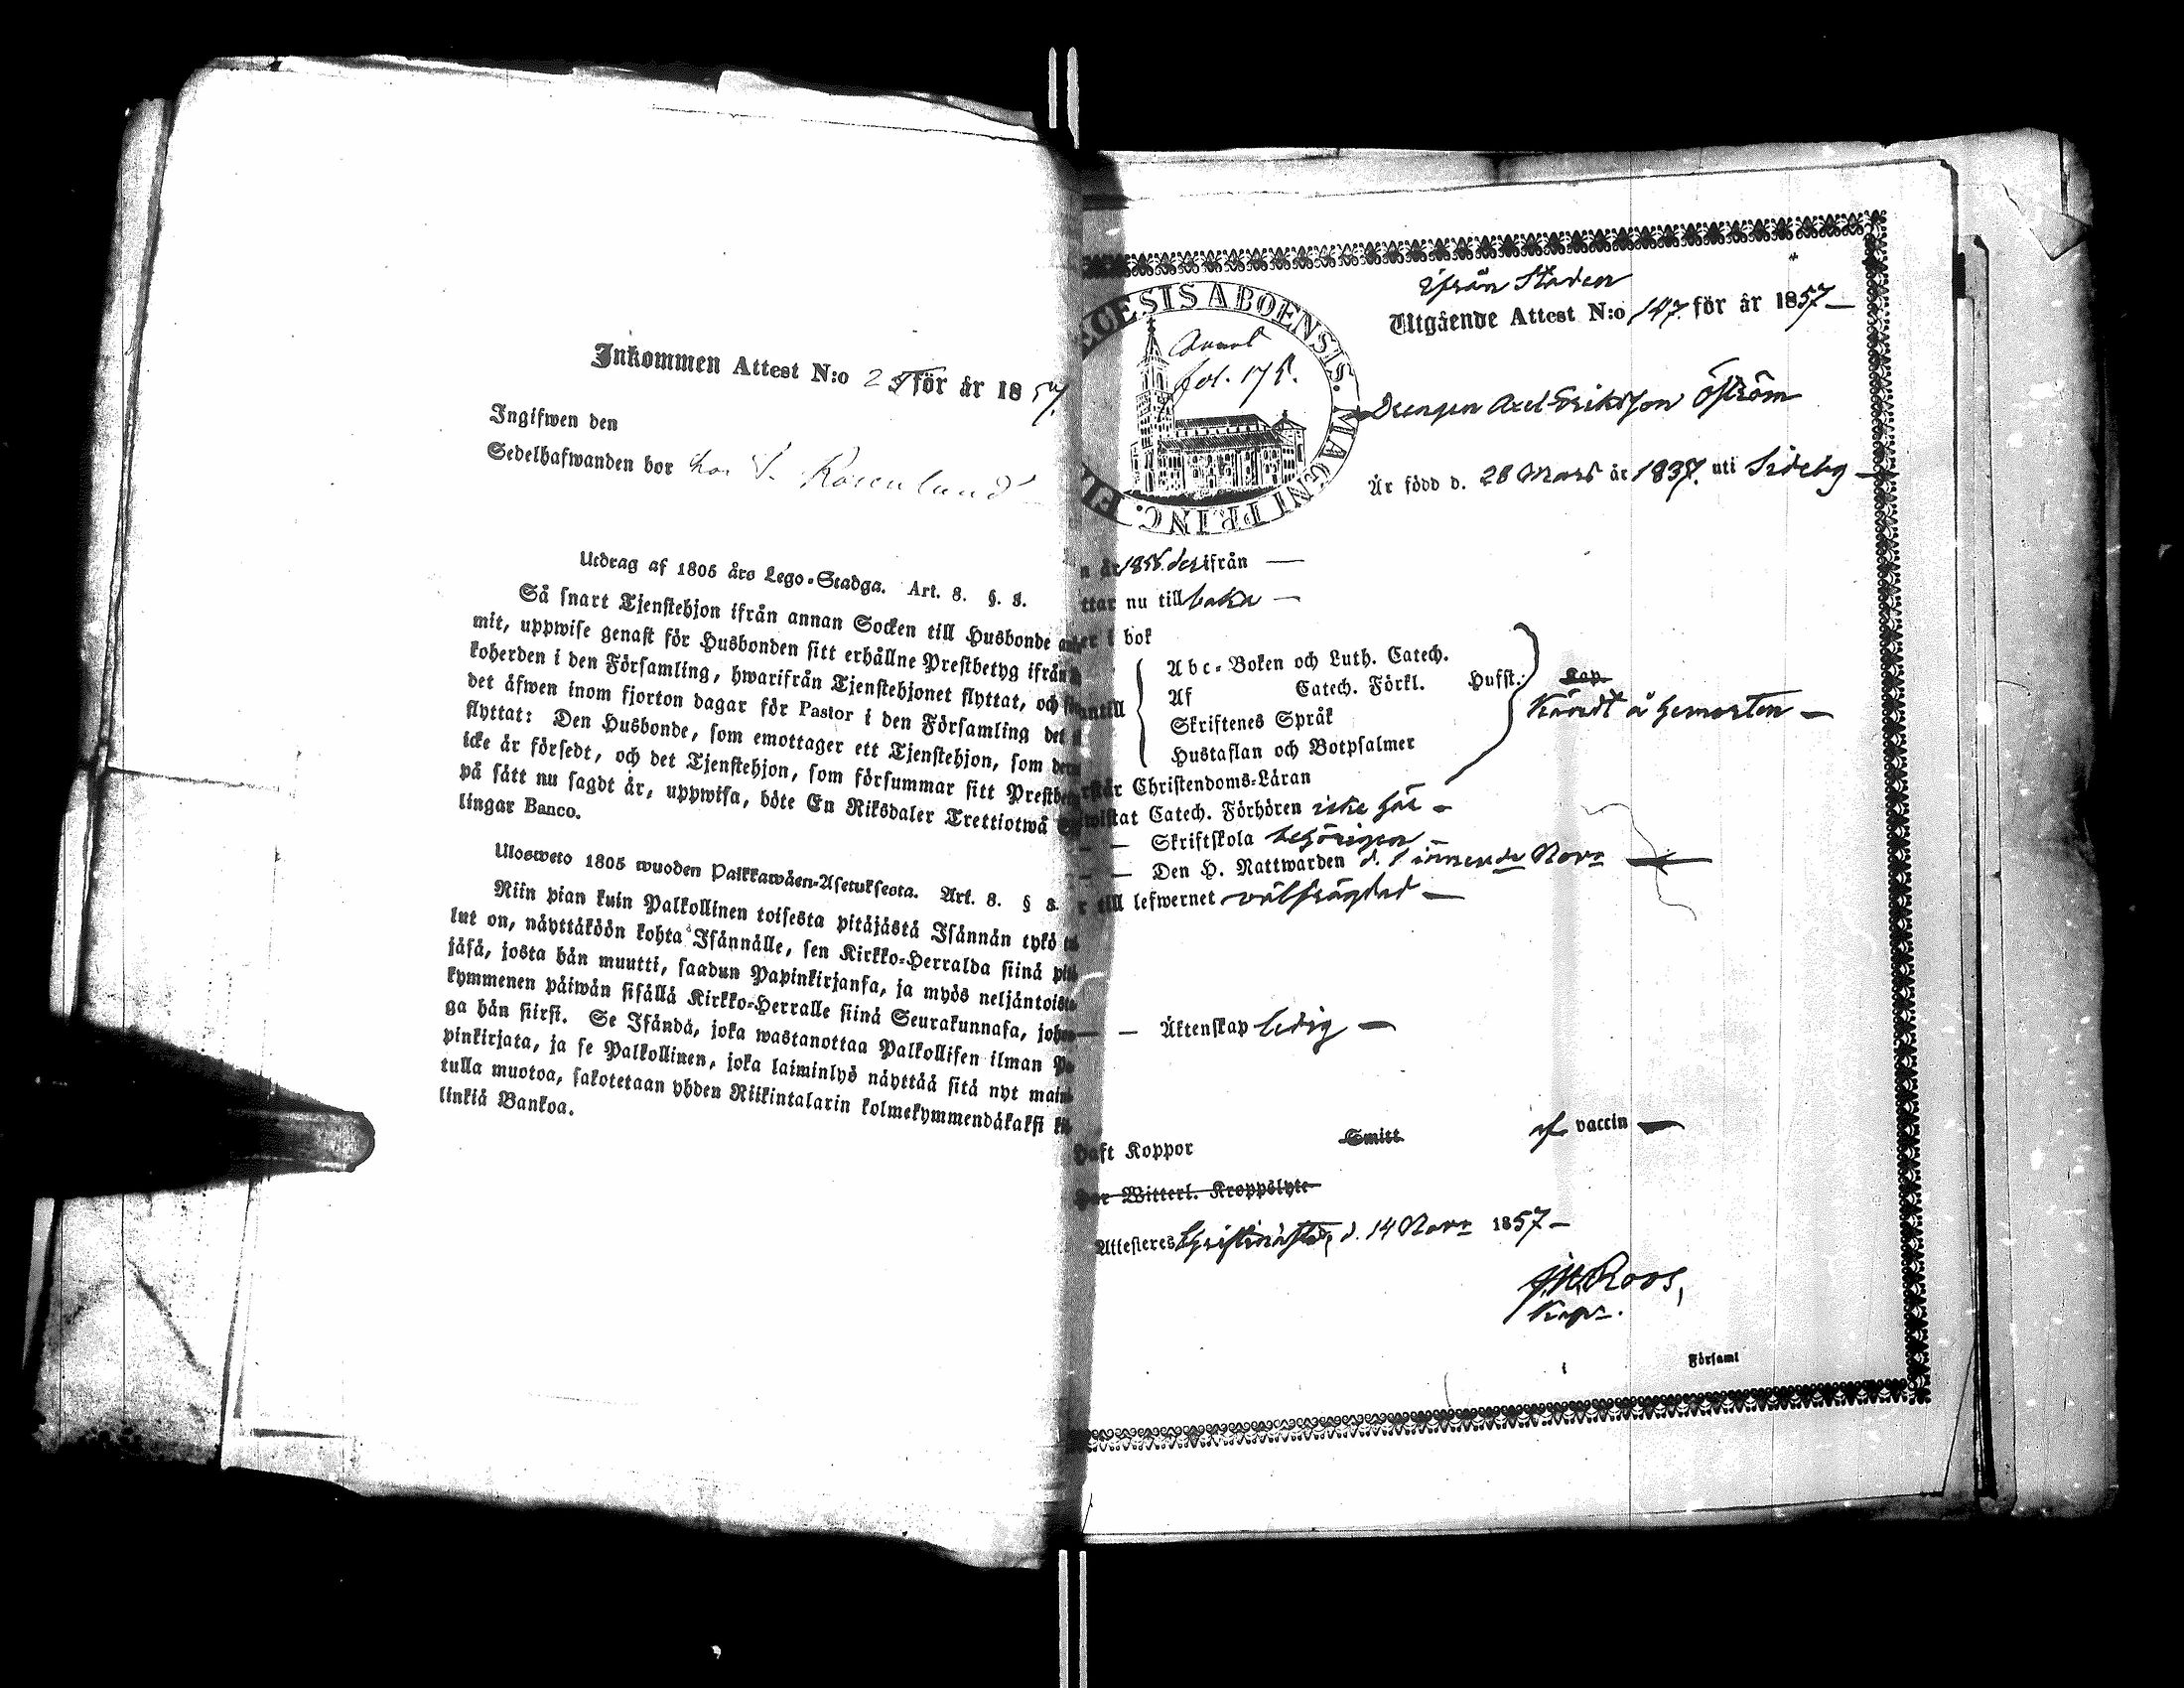 Inkommen Attest N:o 2 för år 1857.
Ingifwen den
Sedelhafwanden bor hos S. Rosenlund
Utdrag af 1805 års Lego-Stadga. Art. 8. §. 8.
Så snart Tjenstehjon ifrån annan Socken till Husbonde
mit, uppwise genast för Husbonden sitt erhållne Prestbetyg ifrån
koherden i den Församling, hwarifrån Tjenstehjonet flyttat, och
det äfwen inom fjorton dagar för Pastor i den Församling det
flyttat: Den Husbonde, som emottager ett Tjenstehjon, som
icke är försedt, och det Tjenstehjon, som försummar sitt
på sätt nu sagdt är, uppwisa, böte En Riksdaler Trettiotwå
lingar Banco.
Ulosweto 1805 wuoden Palkkawäen-Asetuksesta. Art. 8. § 8.
Niin pian kuin Palkollinen toisesta pitäjästä Isännän tykö
lut on, näyttäköön kohta Isännälle, sen Kirkko-Herralda siinä
jäsä, josta hän muutti, saadun Papinkirjansa, ja myös neljäntoista
kymmenen päiwän sisällä Kirkko-Herralle siinä Seurakunnasa,
ga hän siirsi. Se Isändä, joka wastanottaa Palkollisen ilman
pinkirjata, ja se Palkollinen, joka laiminlyö näyttää sitä nyt
tulla muotoa, sakotetaan yhden Riikintalarin kolmekymmendäkaksi
linkiä Bankoa.
SIS ABOENSIS. MAGNI PRINC.
fol. 175.
ifrån Staden
Utgående Attest N:o 147. för år 1857
Drengen Axel Eriksson Öström
Är född d. 28 Mars år 1837. uti Sideby
derifrån
nu till baka
i bok
Abc-Boken och Luth. Catech.
Af Catech. Förkl. Husst.
Skriftenes Språk
Hustaflan och Botpsalmer
Christendoms-Läran
Catech. Förhören icke här
Skriftskola behörigen
Den H. Nattwarden d. 1 innevde Nov
till lefwernet välfrägdad
Äktenskap ledig
Haft Koppor Smitt af vaccin
Witterl. Kroppslyte
Attesteres Christinestad, d. 14 Nov 1857
Roos,
Kapn.
Församl